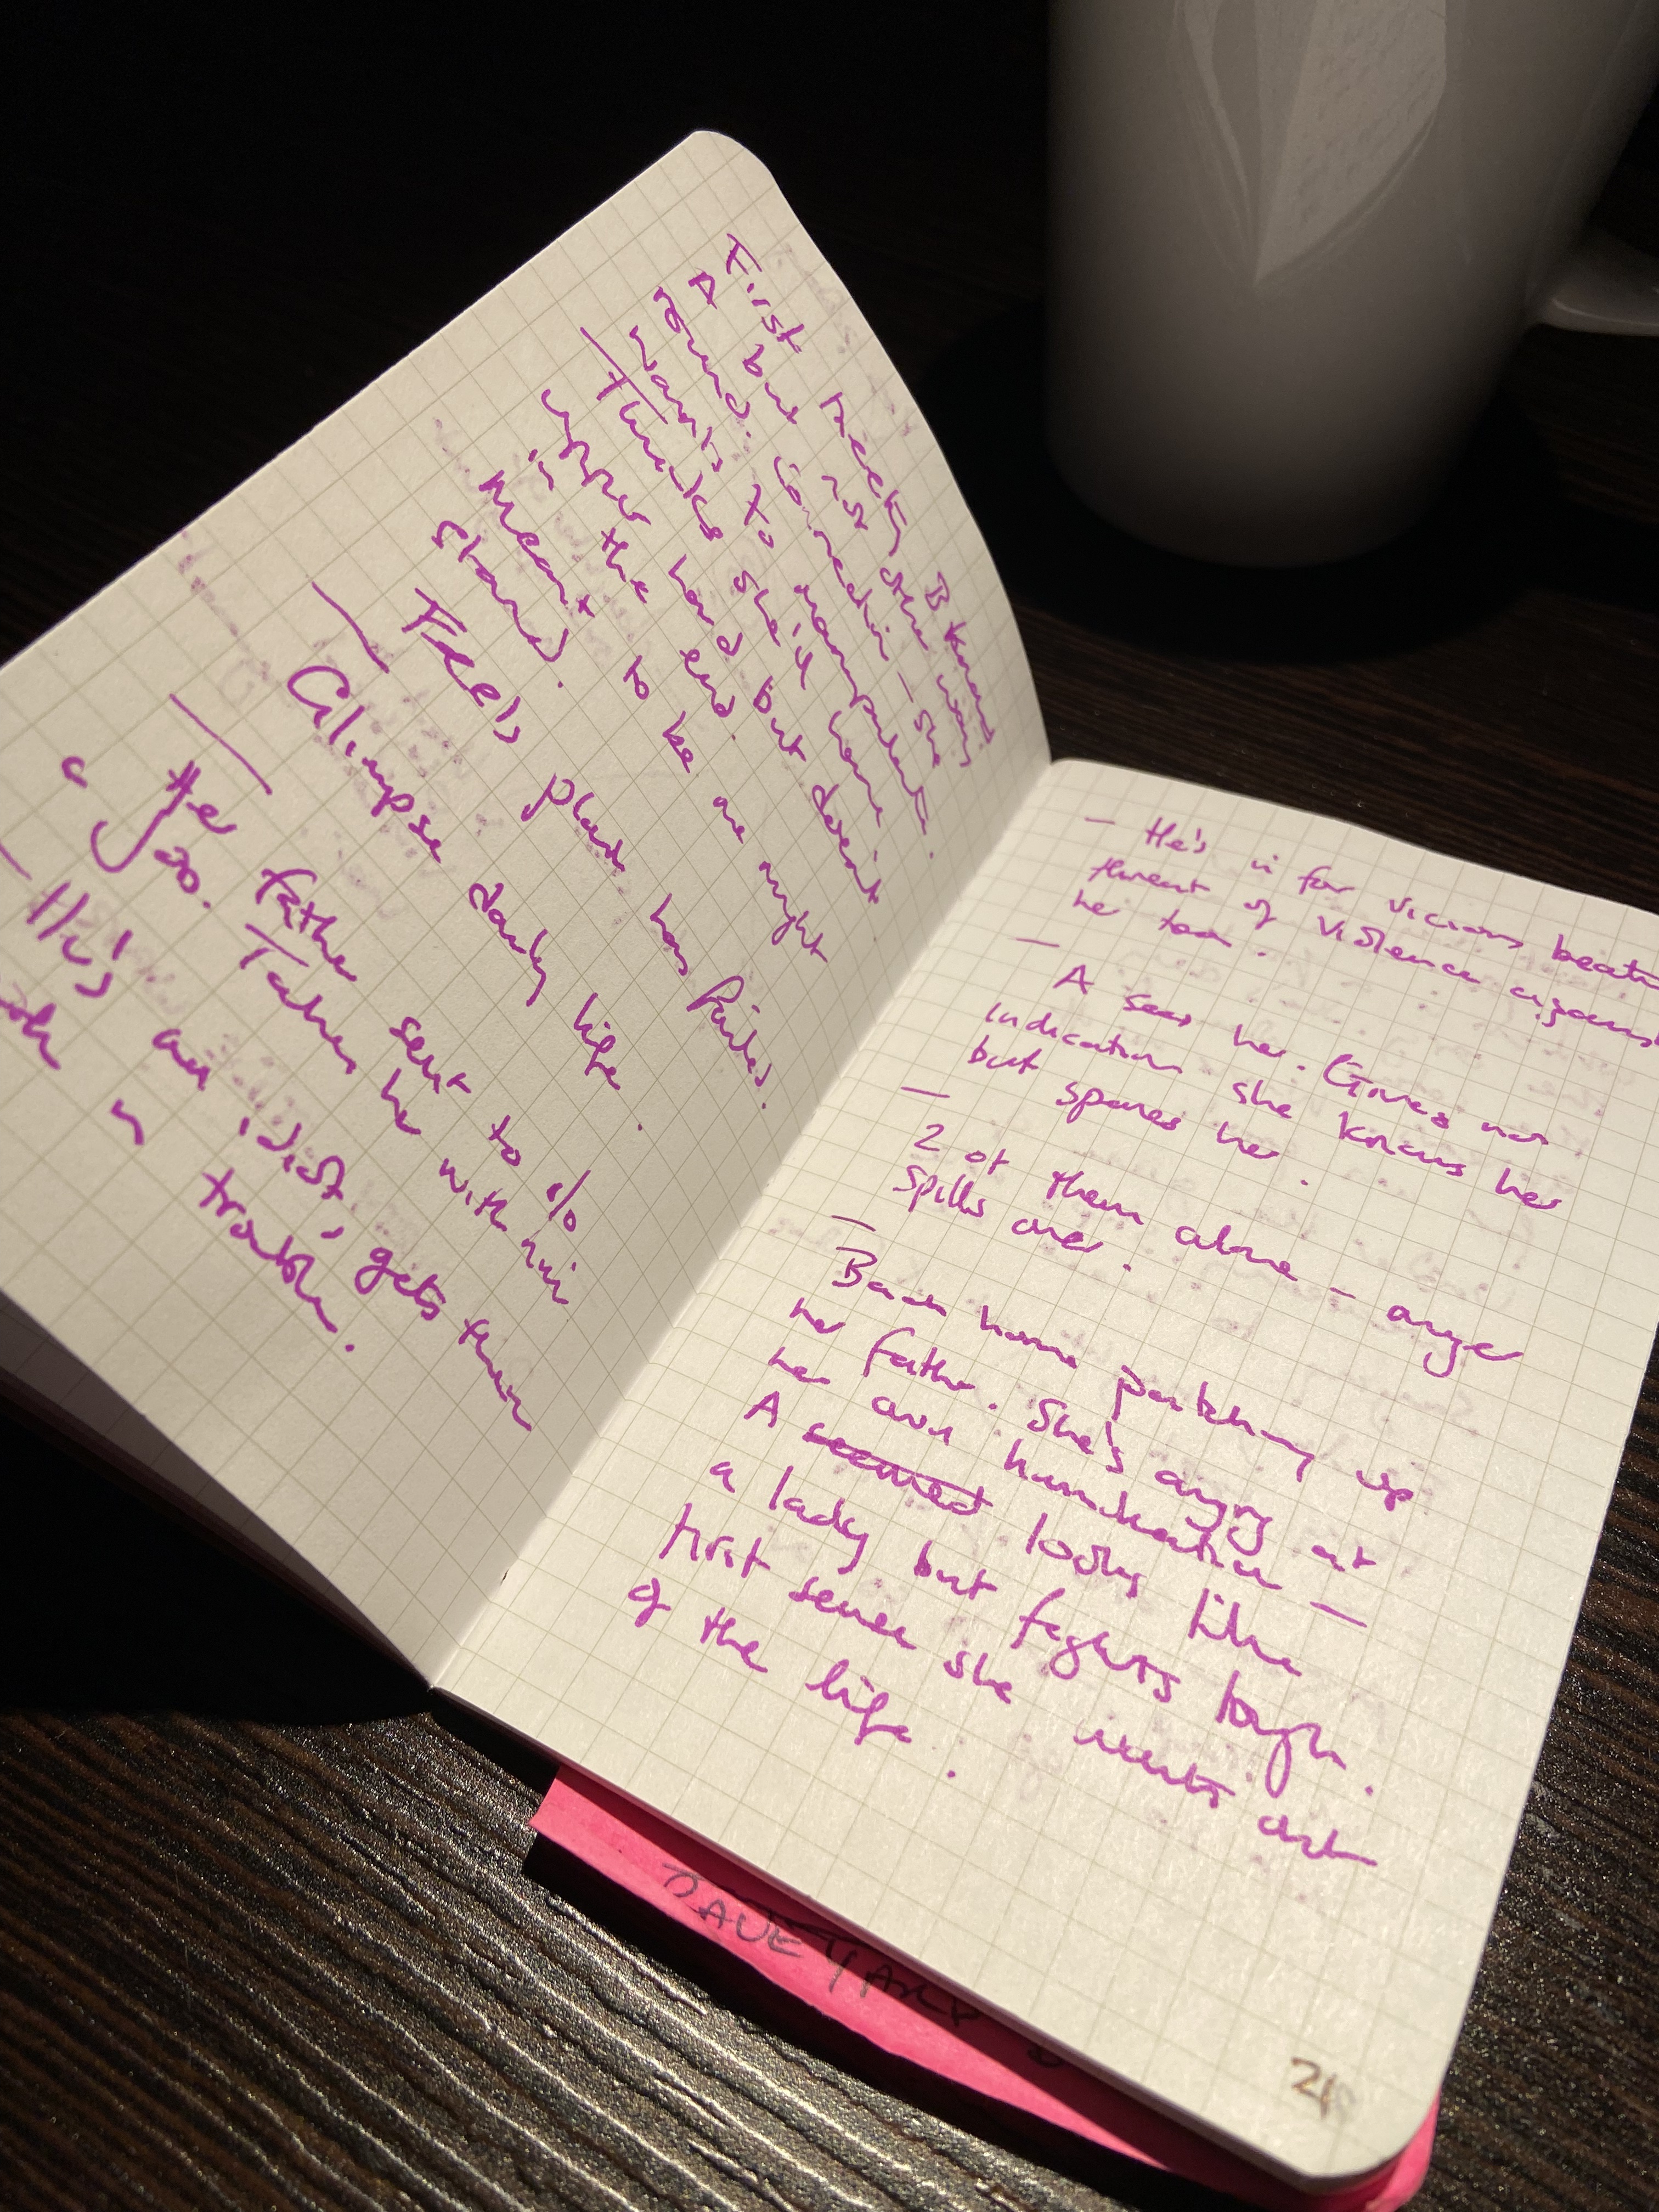 First meeting B knows
A but not other way
round. Connection – she
wants to manipulate.
– Thinks she'll have
upper hand but doesn't
in the end.
meant to be one night
stand.
– Feels plan has failed.
Glimpse daily life.
– Her father sent to do
a job. Takes her with him
– He's an idiot, gets them
both in trouble.
– He's in for vicious beating
threat of violence against
her too.
– A sees her. Gives no
indication she knows her
but spares her.
– 2 of them alone – anger
spills over.
– Back home patching up
her father. She's angry at
her own humiliation –
A seemed looks like
a lady but fights tough.
First sense she wants out
of the life.
24